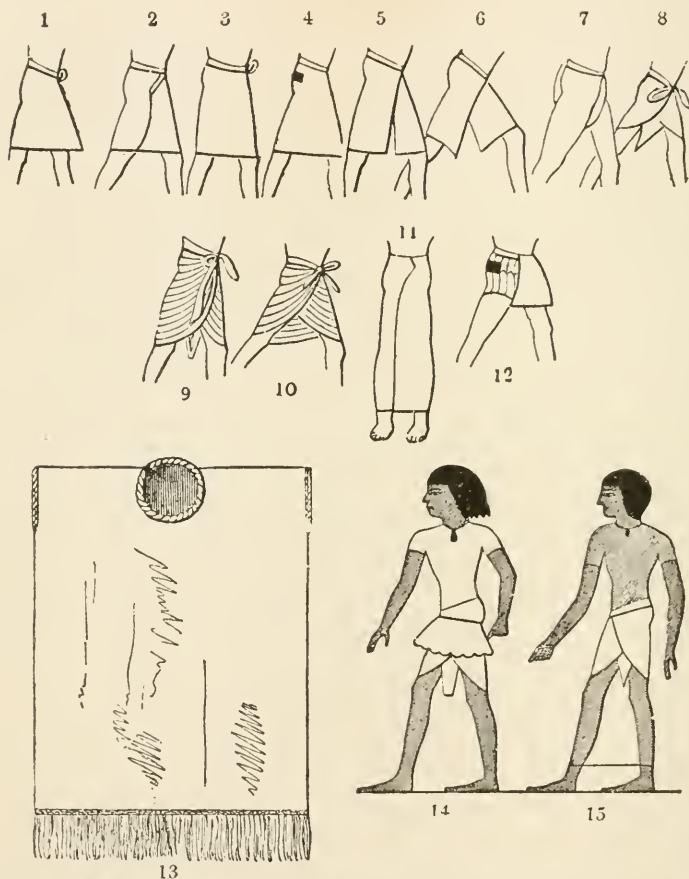 1 2 3 4 5 6 7 8
11
9 10 12
13 14 15